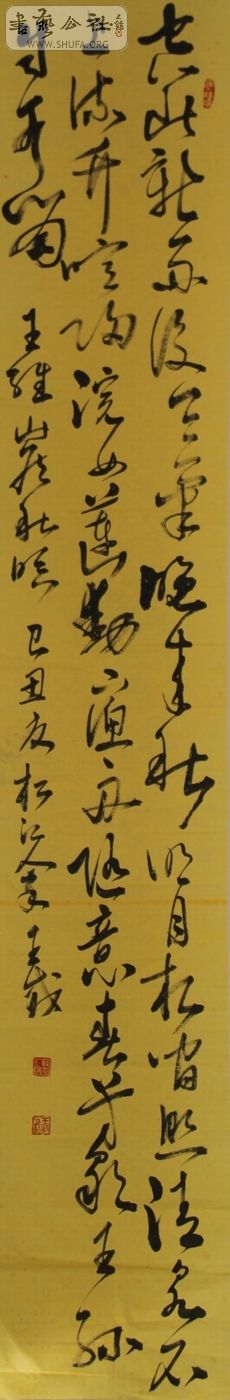 空山新雨后天气晚来秋明月松间照清泉石
上流竹喧归浣女莲动渔舟随意春芳歇王孙
自可留
王维山居秋暝己丑夏松江人李
書藝公社
WWW.SHUFA.ORG